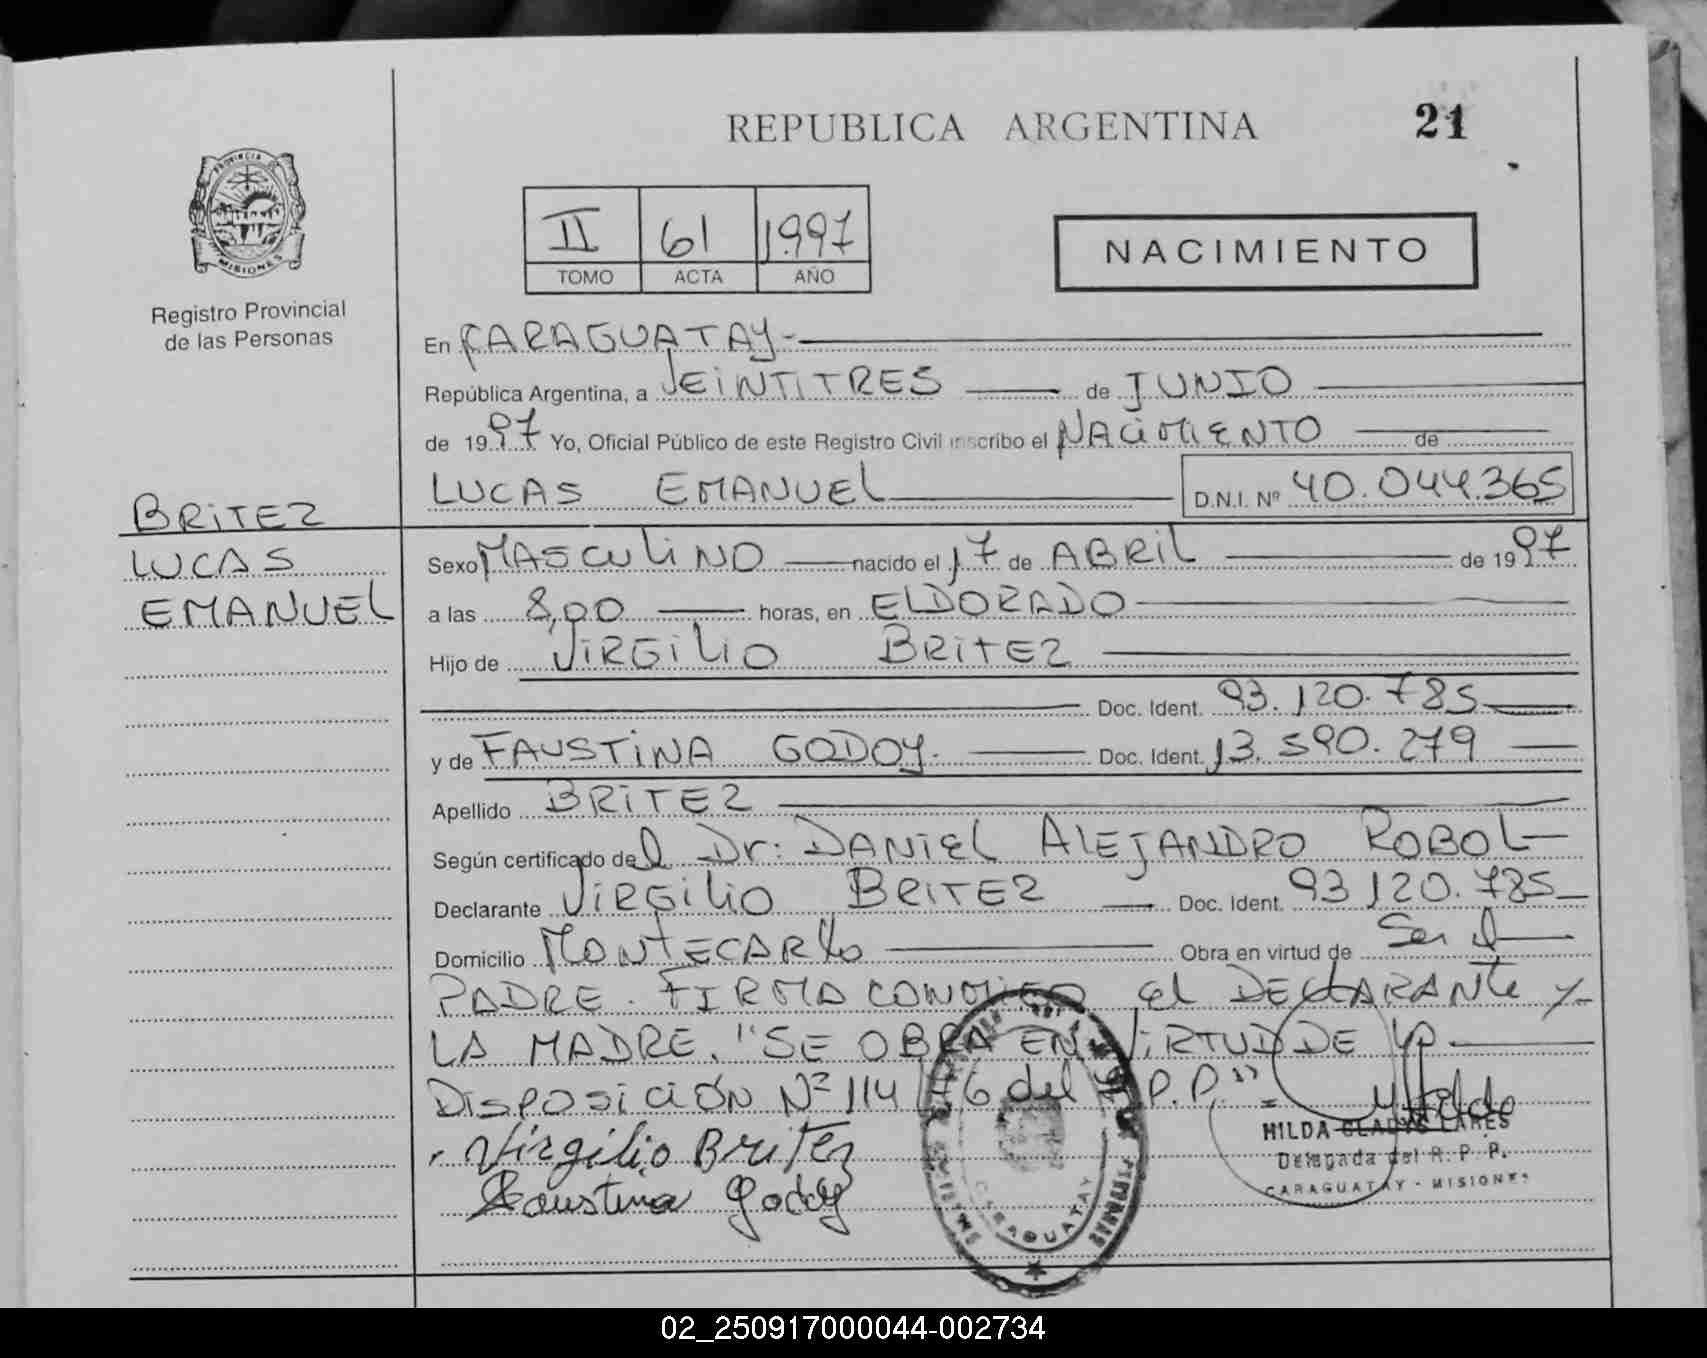 REPUBLICA ARGENTINA
21
PROVINCIA
MISIONES
Registro Provincial
de las Personas
II 61 1997
TOMO ACTA AÑO
NACIMIENTO
En CARAGUATAY-
República Argentina, a VEINTITRES de JUNIO
de 1997 Yo, Oficial Público de este Registro Civil inscribo el NACIMIENTO de
LUCAS EMANUEL D.N.I. Nº 40.044.365
BRITEZ
LUCAS
EMANUEL
Sexo MASCULINO nacido el 17 de ABRIL de 1997
a las 8,00 horas, en ELDORADO
Hijo de VIRGILIO BRITEZ
Doc. Ident. 93.120.785
y de FAUSTINA GODOY. Doc. Ident. 13.590.279
Apellido BRITEZ
Según certificado del Dr: DANIEL ALEJANDRO ROBOL
Declarante VIRGILIO BRITEZ Doc. Ident. 93120.785
Domicilio MONTECARLO Obra en virtud de Ser el
PADRE. FIRMA CONMIGO el DECLARANTE y
LA MADRE. "SE OBRA EN VIRTUD DE LA
DISPOSICIÓN Nº 114 del R.P.P."
Virgilio Britez
Faustina Godoy
HILDA GLADYS LARES
Delegada del R. P. P.
CARAGUATAY - MISIONES
CARAGUATAY
02_250917000044-002734